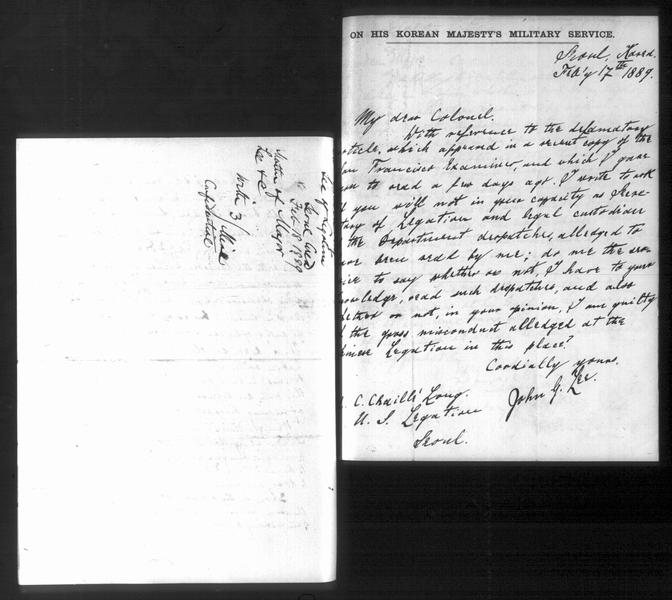 Sec of Legation
Seoul
Feb 18 1889
Matter of Major
Lee &c
Note 3/
Confidential
ON HIS KOREAN MAJESTY'S MILITARY SERVICE.
Seoul, Korea.
Feb'y 17th 1889.
My dear Colonel.
With reference to the defamatory
rticle, which appeared in a recent copy of the
an Francisco Examiner, and which I gave
ou to read a few days ago. I write to ask
f you will not in your capacity as Secre-
tary of Legation and legal custodian
f the Department despatches, alleged to
ave been read by me; do me the ser-
vice to say whether or not, I have to your
nowledge, read such despatches, and also
hether or not, in your opinion, I am guilty
f the gross misconduct alleged at the
hinese Legation in this place?
Cordially yours.
John G. Lee.
. C. Chaillé Long.
U. S. Legation
Seoul.